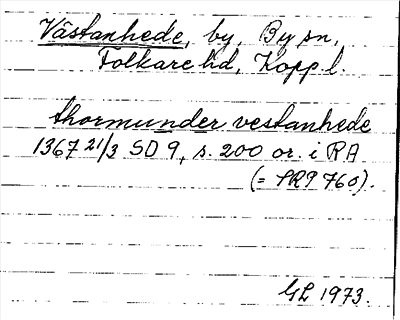 Västanhede, by, By sn,
Folkare hd, Kopp. l.
thormunder vestanhede
1367 21/3 SD 9, s. 200 or. i RA
(= SRP 760).
GL 1973.